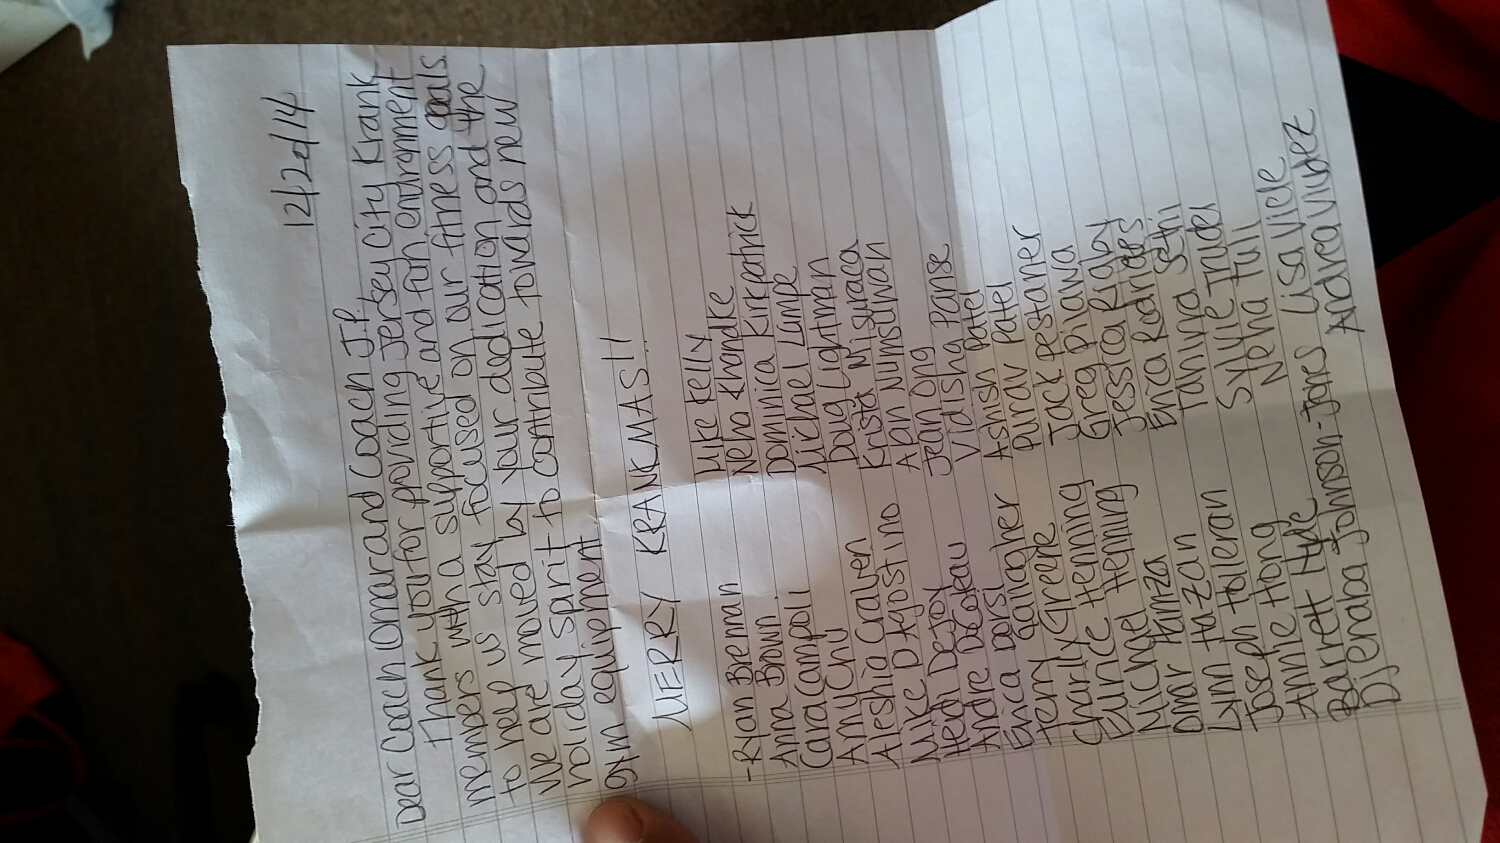 12/20/14
Dear Coach Omar and Coach JP,
Thank you for providing Jersey City Krank
members with a supportive and fun environment
to help us stay focused on our fitness goals.
We are moved by your dedication and the
holiday spirit to contribute towards new
gym equipment
MERRY KRANKMAS!!
-Ryan Breman
Anna Brown
Cara Campoli
Amy Chu
Aleshia Craven
Mike D'Agostino
Heidi DeJoy
Andre
Erica Dorsi
Terry Gallagher
Charly Greene
Eunice Henning
Michael Henning
Omar Hamza
Lynn Hazan
Joseph Holleran
Annie Hong
Barrett Hyde
Djenaba Johnson-Jones
Mike Kelly
Neha Khandke
Dominica Kirkpatrick
Michael Lampe
Doug Lightman
Krista Misuraca
Arin Numsuwan
Jean Ong
Vidisha Panse
Ashish Patel
Purav Patel
Jack Pestaner
Greg Pijawa
Jessica Raby
Erica Rodrigues
Tanya Sethi
Sylvie Trudel
Neha Tuli
Lisa Viele
Andrea Vilbez